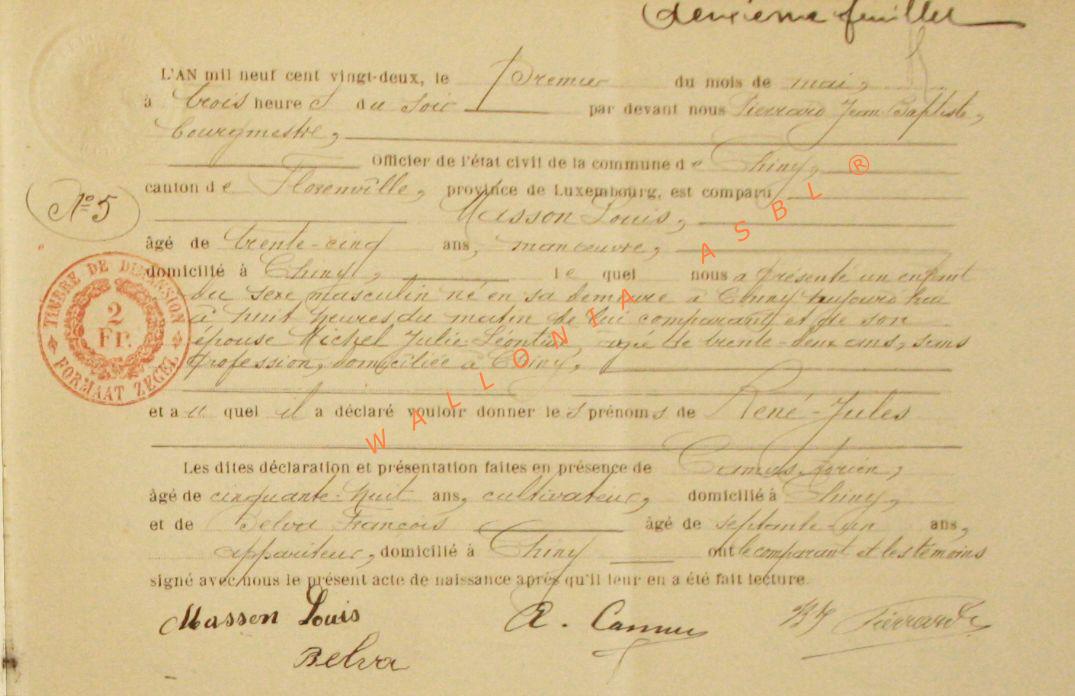 deuxième feuillet
L'AN mil neuf cent vingt-deux, le Premier du mois de mai,
à trois heures du soir par devant nous Pierrard Jean Baptiste,
bourgmestre,
Officier de l'état civil de la commune de Chiny,
canton de Florenville, province de Luxembourg, est comparu
N° 5
Masson Louis,
âgé de trente-cinq ans, manœuvre,
domicilié à Chiny, lequel nous a présenté un enfant
du sexe masculin né en sa demeure à Chiny aujourd'hui
à huit heures du matin de lui comparant et de son
épouse Michel Julie Léontine, âgée de trente-deux ans, sans
profession, domiciliée à Chiny,
et auquel il a déclaré vouloir donner les prénoms de René-Jules
Les dites déclaration et présentation faites en présence de Camus Adrien,
âgé de cinquante-huit ans, cultivateur, domicilié à Chiny,
et de Belva François âgé de septante-un ans,
appariteur, domicilié à Chiny ont le comparant et les témoins
signé avec nous le présent acte de naissance après qu'il leur en a été fait lecture.
Masson Louis A. Camus Pierrard
Belva
TIMBRE DE DIMENSION
2
Fr.
FORMAAT ZEGEL
WALLONIA ASBL ®